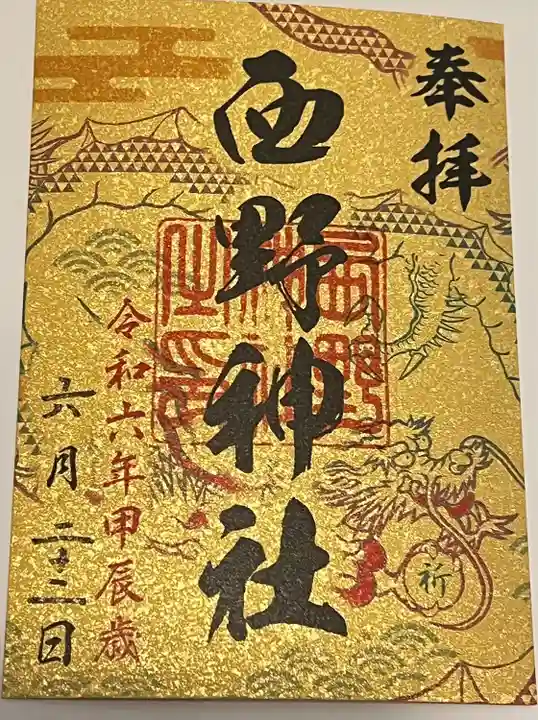 奉拝
西野神社
令和六年甲辰歳
六月二十二日
祈